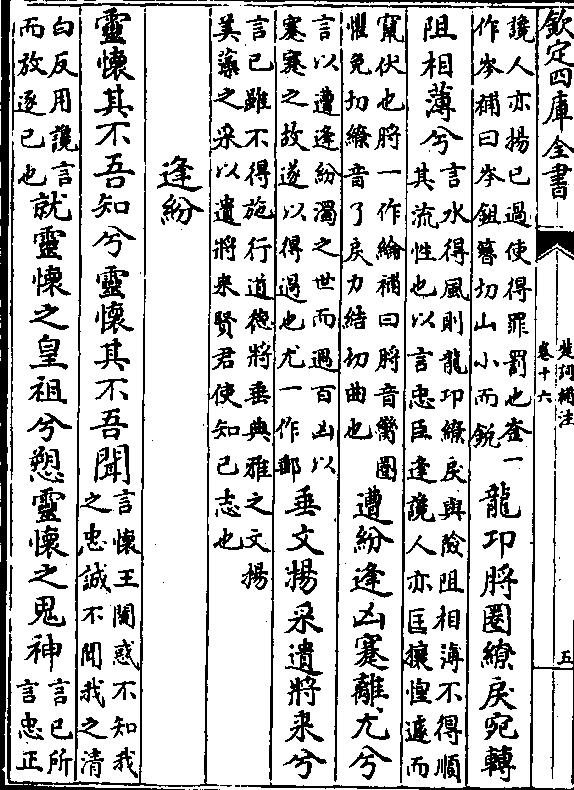 欽定四庫全書
楚詞補注
卷十六
五
讒人亦揚已過使得罪罰也崟一
作岑補曰岑鉏簪切山小而銳
龍卭脟圈繚戾宛轉
阻相薄兮
言水得風則龍卭繚戾與險阻相薄不得順
其流性也以言忠臣逢讒人亦匡攘惶遽而
竄伏也脟一作綸補曰脟音臠圈
懼免切繚音了戾力結切曲也
遭紛逢凶蹇離尤兮
言以遭逢紛濁之世而遇百凶以
蹇蹇之故遂以得過也尤一作郵
垂文揚采遺將來兮
言已雖不得施行道德將垂典雅之文揚
美藻之采以遺將來賢君使知已志也
逢紛
靈懷其不吾知兮靈懷其不吾聞
言懷王闇惑不知我
之忠誠不聞我之清
白反用讒言
而放逐已也
就靈懷之皇祖兮愬靈懷之鬼神
言已所
言忠正